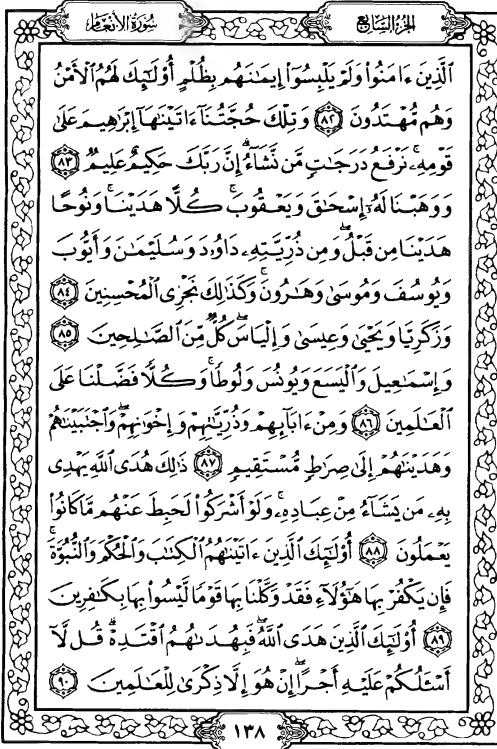 سُورَةُ الأَنْعَام
الجُزءُ السَّابِعُ
ٱلَّذِينَ ءَامَنُوا۟ وَلَمْ يَلْبِسُوٓا۟ إِيمَـٰنَهُم بِظُلْمٍ أُو۟لَـٰٓئِكَ لَهُمُ ٱلْأَمْنُ
وَهُم مُّهْتَدُونَ ﴿٨٢﴾ وَتِلْكَ حُجَّتُنَآ ءَاتَيْنَـٰهَآ إِبْرَٰهِيمَ عَلَىٰ
قَوْمِهِۦ ۚ نَرْفَعُ دَرَجَـٰتٍ مَّن نَّشَآءُ ۗ إِنَّ رَبَّكَ حَكِيمٌ عَلِيمٌ ﴿٨٣﴾
وَوَهَبْنَا لَهُۥٓ إِسْحَـٰقَ وَيَعْقُوبَ ۚ كُلًّا هَدَيْنَا ۚ وَنُوحًا
هَدَيْنَا مِن قَبْلُ ۖ وَمِن ذُرِّيَّتِهِۦ دَاوُۥدَ وَسُلَيْمَـٰنَ وَأَيُّوبَ
وَيُوسُفَ وَمُوسَىٰ وَهَـٰرُونَ ۚ وَكَذَٰلِكَ نَجْزِى ٱلْمُحْسِنِينَ ﴿٨٤﴾
وَزَكَرِيَّا وَيَحْيَىٰ وَعِيسَىٰ وَإِلْيَاسَ ۖ كُلٌّ مِّنَ ٱلصَّـٰلِحِينَ ﴿٨٥﴾
وَإِسْمَـٰعِيلَ وَٱلْيَسَعَ وَيُونُسَ وَلُوطًا ۚ وَكُلًّا فَضَّلْنَا عَلَى
ٱلْعَـٰلَمِينَ ﴿٨٦﴾ وَمِنْ ءَابَآئِهِمْ وَذُرِّيَّـٰتِهِمْ وَإِخْوَٰنِهِمْ ۖ وَٱجْتَبَيْنَـٰهُمْ
وَهَدَيْنَـٰهُمْ إِلَىٰ صِرَٰطٍ مُّسْتَقِيمٍ ﴿٨٧﴾ ذَٰلِكَ هُدَى ٱللَّهِ يَهْدِى
بِهِۦ مَن يَشَآءُ مِنْ عِبَادِهِۦ ۚ وَلَوْ أَشْرَكُوا۟ لَحَبِطَ عَنْهُم مَّا كَانُوا۟
يَعْمَلُونَ ﴿٨٨﴾ أُو۟لَـٰٓئِكَ ٱلَّذِينَ ءَاتَيْنَـٰهُمُ ٱلْكِتَـٰبَ وَٱلْحُكْمَ وَٱلنُّبُوَّةَ ۚ
فَإِن يَكْفُرْ بِهَا هَـٰٓؤُلَآءِ فَقَدْ وَكَّلْنَا بِهَا قَوْمًا لَّيْسُوا۟ بِهَا بِكَـٰفِرِينَ
﴿٨٩﴾ أُو۟لَـٰٓئِكَ ٱلَّذِينَ هَدَى ٱللَّهُ ۖ فَبِهُدَىٰهُمُ ٱقْتَدِهْ ۗ قُل لَّآ
أَسْـَٔلُكُمْ عَلَيْهِ أَجْرًا ۖ إِنْ هُوَ إِلَّا ذِكْرَىٰ لِلْعَـٰلَمِينَ ﴿٩٠﴾
١٣٨